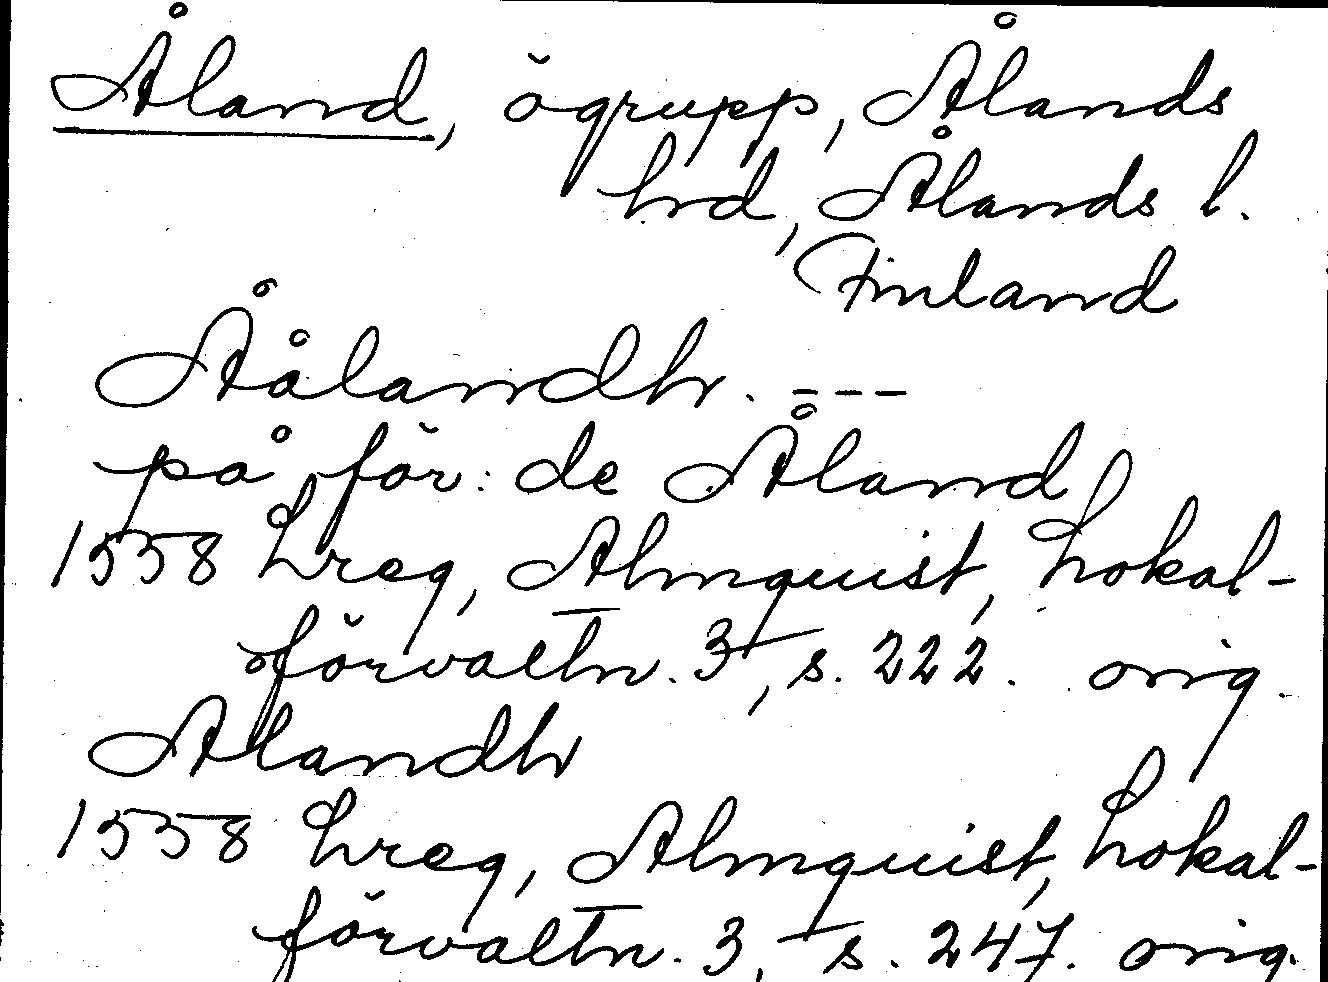 Åland, ögrupp, Ålands
hd, Ålands l.
Finland
Åålandh. ---
på för: de Åland
1558 Lreg, Almquist, Lokal-
förvaltn. 3, s. 222. orig.
Alandh
1558 Lreg, Almquist, Lokal-
förvaltn. 3, s. 247. orig.